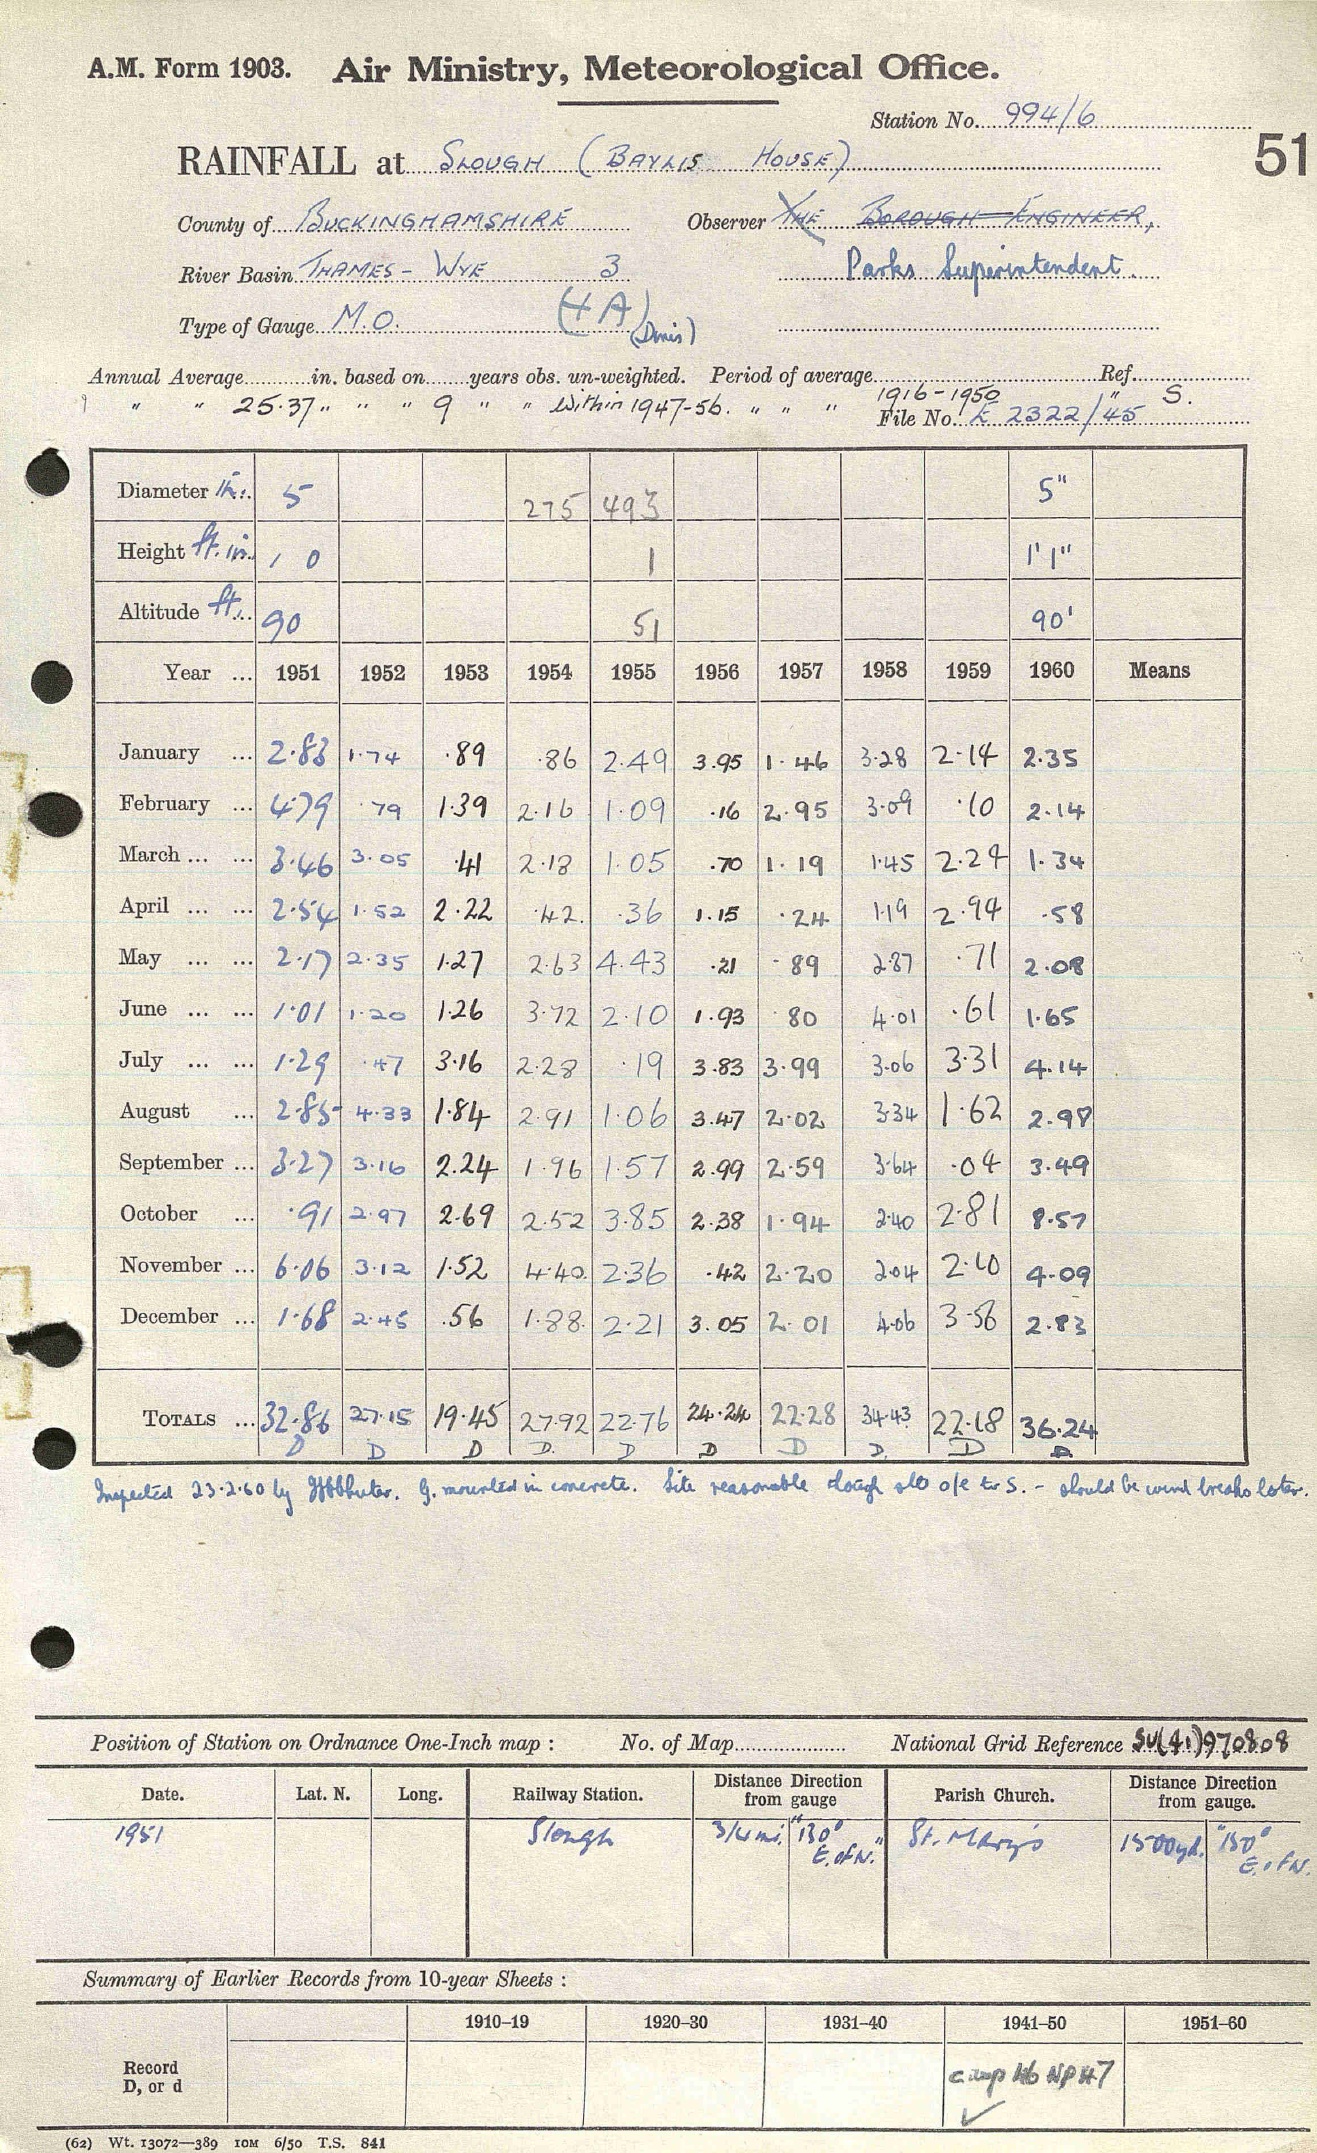 A.M. Form 1903. Air Ministry, Meteorological Office.
Station No. 994/6
51
RAINFALL at SLOUGH (BAYLIS HOUSE)
County of BUCKINGHAMSHIRE Observer THE BOROUGH ENGINEER,
River Basin THAMES - WYE 3 Parks Superintendent.
Type of Gauge M.O. (4A)
Annual Average in. based on years obs. un-weighted. Period of average Ref.
" " 25.37 " " " 9 " " Within 1947-56. " " " 1916-1950 " S.
File No. E 2322/45
Diameter in. 5 275 493 5"
Height ft. in. 1 0 1 1' 1"
Altitude ft. 90 51 90'
Year ... 1951 1952 1953 1954 1955 1956 1957 1958 1959 1960 Means
January ... 2.83 1.74 .89 .86 2.49 3.95 1.46 3.28 2.14 2.35
February ... 4.79 .79 1.39 2.16 1.09 .16 2.95 3.09 .10 2.14
March ... ... 3.46 3.05 .41 2.18 1.05 .70 1.19 1.45 2.24 1.34
April ... ... 2.54 1.52 2.22 .42 .36 1.15 .24 1.19 2.94 .58
May ... ... 2.17 2.35 1.27 2.63 4.43 .21 .89 2.87 .71 2.08
June ... ... 1.01 1.20 1.26 3.72 2.10 1.93 .80 4.01 .61 1.65
July ... ... 1.29 .47 3.16 2.28 .19 3.83 3.99 3.06 3.31 4.14
August ... 2.85 4.33 1.84 2.91 1.06 3.47 2.02 3.34 1.62 2.98
September ... 3.27 3.16 2.24 1.96 1.57 2.99 2.59 3.64 .04 3.49
October ... .91 2.97 2.69 2.52 3.85 2.38 1.94 2.40 2.81 8.57
November ... 6.06 3.12 1.52 4.40 2.36 .42 2.20 2.04 2.10 4.09
December ... 1.68 2.45 .56 1.88 2.21 3.05 2.01 4.06 3.56 2.83
TOTALS ... 32.86 27.15 19.45 27.92 22.76 24.24 22.28 34.43 22.18 36.24
D D D D. D D D D. D D.
Inspected 23.2.60 by G. mounted in concrete. Site reasonable though o/e to S. - should be wind breaks later.
Position of Station on Ordnance One-Inch map : No. of Map National Grid Reference SU(41)970808
Date. Lat. N. Long. Railway Station. Distance from gauge Direction Parish Church. Distance from gauge. Direction
1951 Slough 3/4 mi. "130° E. of N." St. Mary's 1500yd. "150° E. of N.
Summary of Earlier Records from 10-year Sheets :
1910–19 1920–30 1931–40 1941–50 1951–60
Record
D, or d
comp 46 NP 47
(62) Wt. 13072—389 10M 6/50 T.S. 841